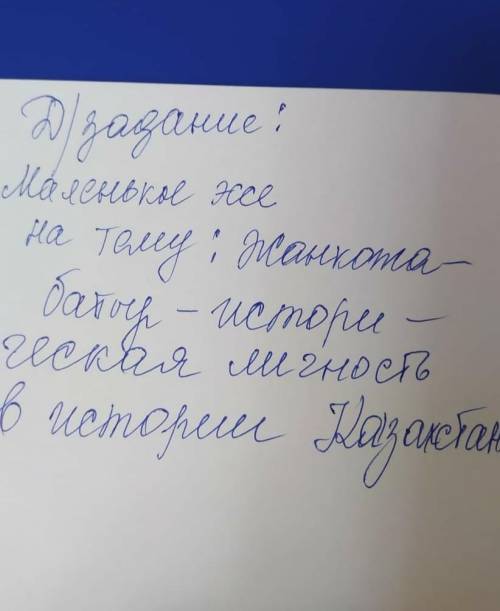 Д/задание:
Маленькое же
на тему: Жанкожа-
батыр - истори-
ческая личность
в истории Казахстан